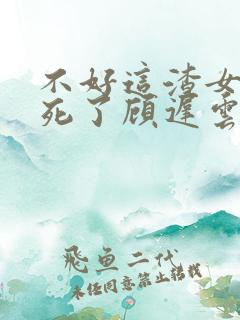 不好這渣女
死了顾遲雲
飛魚二代
未经同意禁止轉载